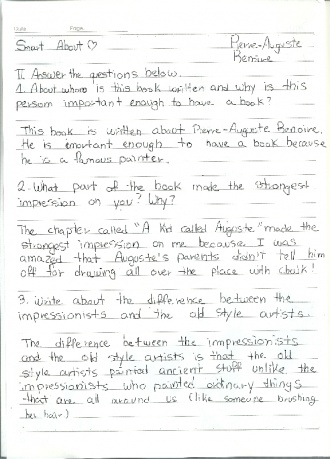 Date Page
Smart About ♡ Pierre-Auguste
Benoire
II. Answer the questions below.
1. About whom is this book written and why is this
person important enough to have a book?
This book is written about Pierre-Auguste Benoire.
He is emortant enough to have a book because
he is a famous painter.
2. What part of the book made the strongest
impression on you? Why?
The chapter called "A Kid called Auguste" made the
strongest impression on me because I was
amazed that Auguste's parents didn't tell him
off for drawing all over the place with chalk!
3. Write about the difference between the
impressionists and the old style artists.
The difference between the impressionists
and the old style artists is that the old
style artists painted ancient stuff unlike the
impressionists who painted ordinary things
that are all around us (like someone brushing
her hair)